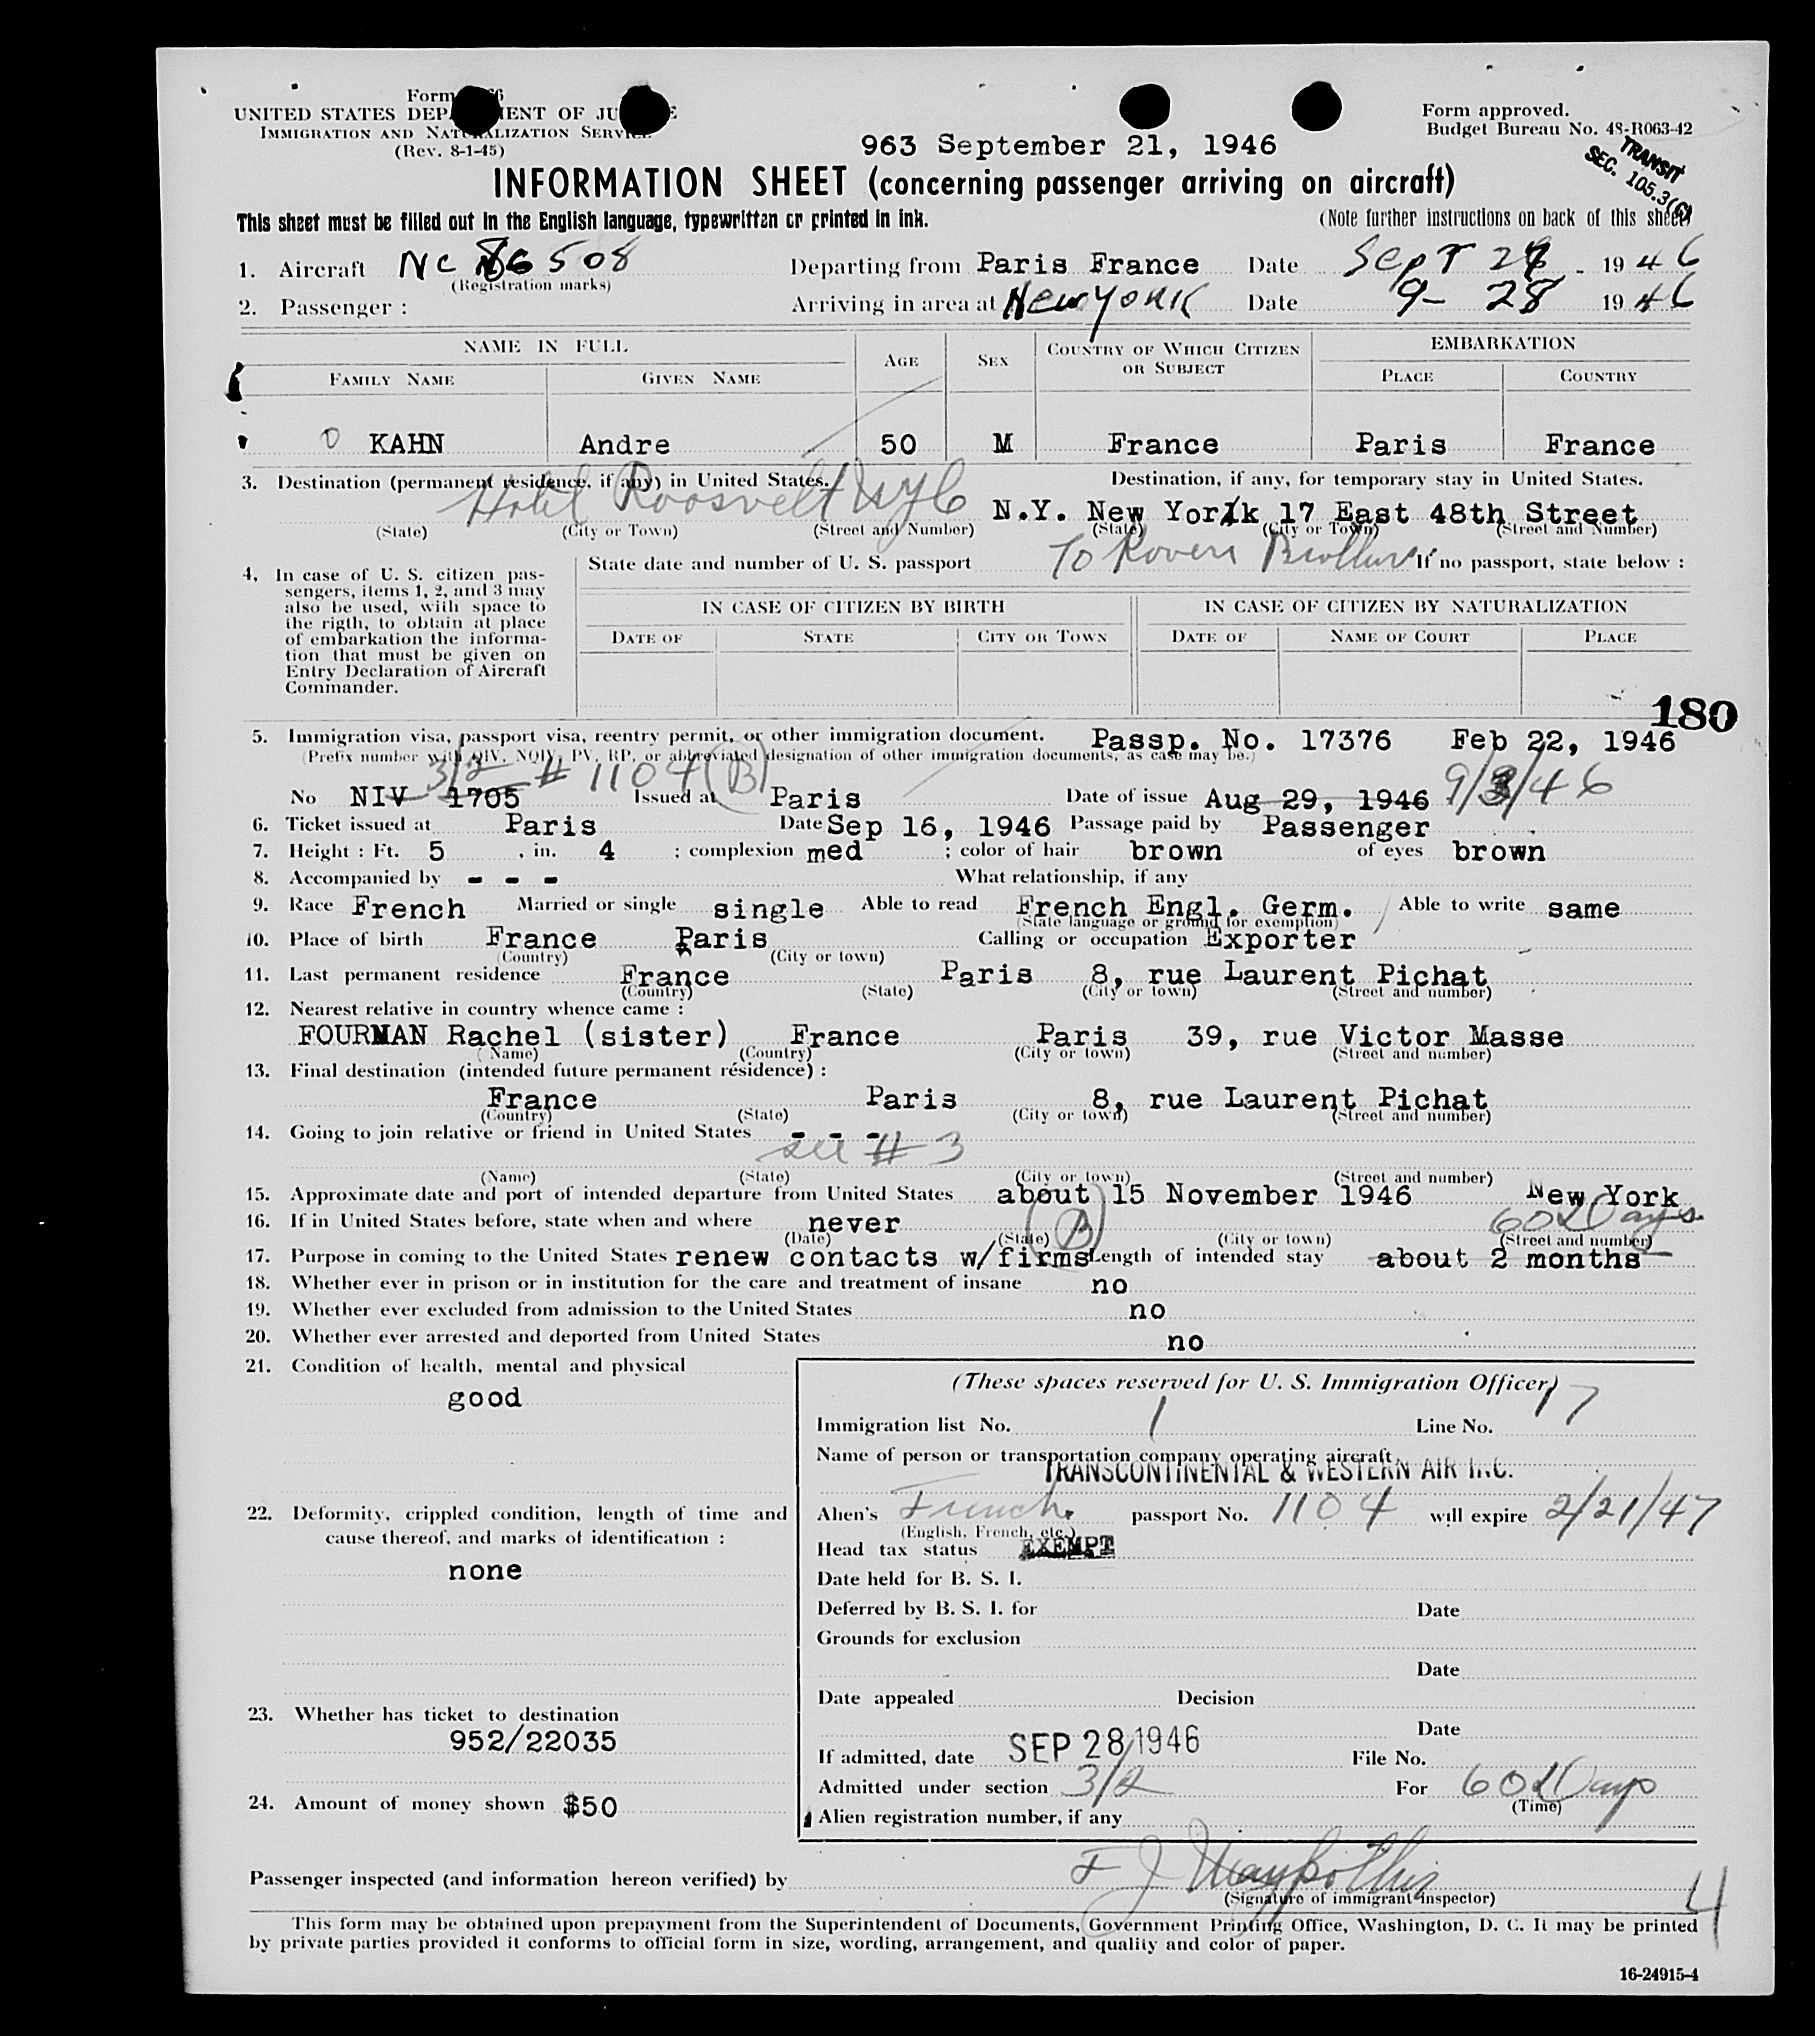 Form
UNITED STATES DEPARTMENT OF JUSTICE
IMMIGRATION AND NATURALIZATION SERVICE
(Rev. 8-1-45)
Form approved.
Budget Bureau No. 43-R063-42
963 September 21, 1946
TRANSIT
SEC. 105.3(C)
INFORMATION SHEET (concerning passenger arriving on aircraft)
This sheet must be filled out in the English language, typewritten or printed in ink. (Note further instructions on back of this sheet)
1. Aircraft NC 86508 Departing from Paris France Date SEPT 27 1946
(Registration marks)
2. Passenger : Arriving in area at New York Date 9-28 1946
NAME IN FULL AGE SEX COUNTRY OF WHICH CITIZEN OR SUBJECT EMBARKATION
FAMILY NAME GIVEN NAME PLACE COUNTRY
KAHN Andre 50 M France Paris France
3. Destination (permanent residence, if any) in United States. Destination, if any, for temporary stay in United States.
Hotel Roosvelt NYC N.Y. New York 17 East 48th Street
(State) (City or Town) (Street and Number) (State) (City or Town) (Street and Number)
4. In case of U. S. citizen pas-
sengers, items 1, 2, and 3 may
also be used, with space to
the rigth, to obtain at place
of embarkation the informa-
tion that must be given on
Entry Declaration of Aircraft
Commander.
State date and number of U. S. passport To Brothers If no passport, state below :
IN CASE OF CITIZEN BY BIRTH IN CASE OF CITIZEN BY NATURALIZATION
DATE OF STATE CITY OR TOWN DATE OF NAME OF COURT PLACE
180
5. Immigration visa, passport visa, reentry permit, or other immigration document. Passp. No. 17376 Feb 22, 1946
(Prefix number with QIV, NQIV, PV, RP, or abbreviated designation of other immigration documents, as case may be.)
3/2 # 1104 (B) 9/3/46
No NIV 1705 Issued at Paris Date of issue Aug 29, 1946
6. Ticket issued at Paris Date Sep 16, 1946 Passage paid by Passenger
7. Height : Ft. 5 , in. 4 ; complexion med ; color of hair brown of eyes brown
8. Accompanied by - - - What relationship, if any
9. Race French Married or single single Able to read French Engl. Germ. Able to write same
(State language or ground for exemption)
10. Place of birth France Paris Calling or occupation Exporter
(Country) (City or town)
11. Last permanent residence France Paris 8, rue Laurent Pichat
(Country) (State) (City or town) (Street and number)
12. Nearest relative in country whence came :
FOURMAN Rachel (sister) France Paris 39, rue Victor Masse
(Name) (Country) (City or town) (Street and number)
13. Final destination (intended future permanent résidence) :
France Paris 8, rue Laurent Pichat
(Country) (State) (City or town) (Street and number)
14. Going to join relative or friend in United States - - -
see # 3
(Name) (State) (City or town) (Street and number)
15. Approximate date and port of intended departure from United States about 15 November 1946 New York
16. If in United States before, state when and where never (B) 60 Days
(Date) (State) (City or town) (Street and number)
17. Purpose in coming to the United States renew contacts w/firms Length of intended stay about 2 months
18. Whether ever in prison or in institution for the care and treatment of insane no
19. Whether ever excluded from admission to the United States no
20. Whether ever arrested and deported from United States no
21. Condition of health, mental and physical
good
22. Deformity, crippled condition, length of time and
cause thereof, and marks of identification :
none
23. Whether has ticket to destination
952/22035
24. Amount of money shown $50
(These spaces reserved for U. S. Immigration Officer)
Immigration list No. 1 Line No. 17
Name of person or transportation company operating aircraft.
TRANSCONTINENTAL & WESTERN AIR INC.
Alien's French passport No. 1104 will expire 2/21/47
(English, French, etc.)
Head tax status EXEMPT
Date held for B. S. I.
Deferred by B. S. I. for Date
Grounds for exclusion
Date
Date appealed Decision
Date
If admitted, date SEP 28 1946 File No.
Admitted under section 3/2 For 60 Days
(Time)
Alien registration number, if any
Passenger inspected (and information hereon verified) by F J
(Signature of immigrant inspector)
4
This form may be obtained upon prepayment from the Superintendent of Documents, Government Printing Office, Washington, D. C. It may be printed
by private parties provided it conforms to official form in size, wording, arrangement, and quality and color of paper.
16-24915-4